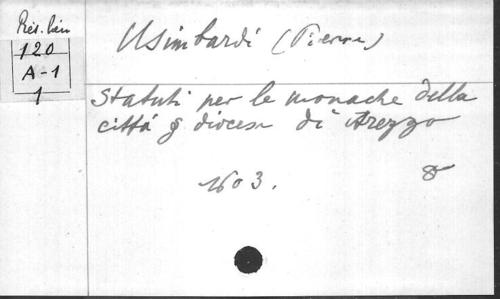 Rés. Lin
120
A-1
1
Usimbardi (Pierre)
Statuti per le monache della
città & diocesi di Arezzo
1603.
8